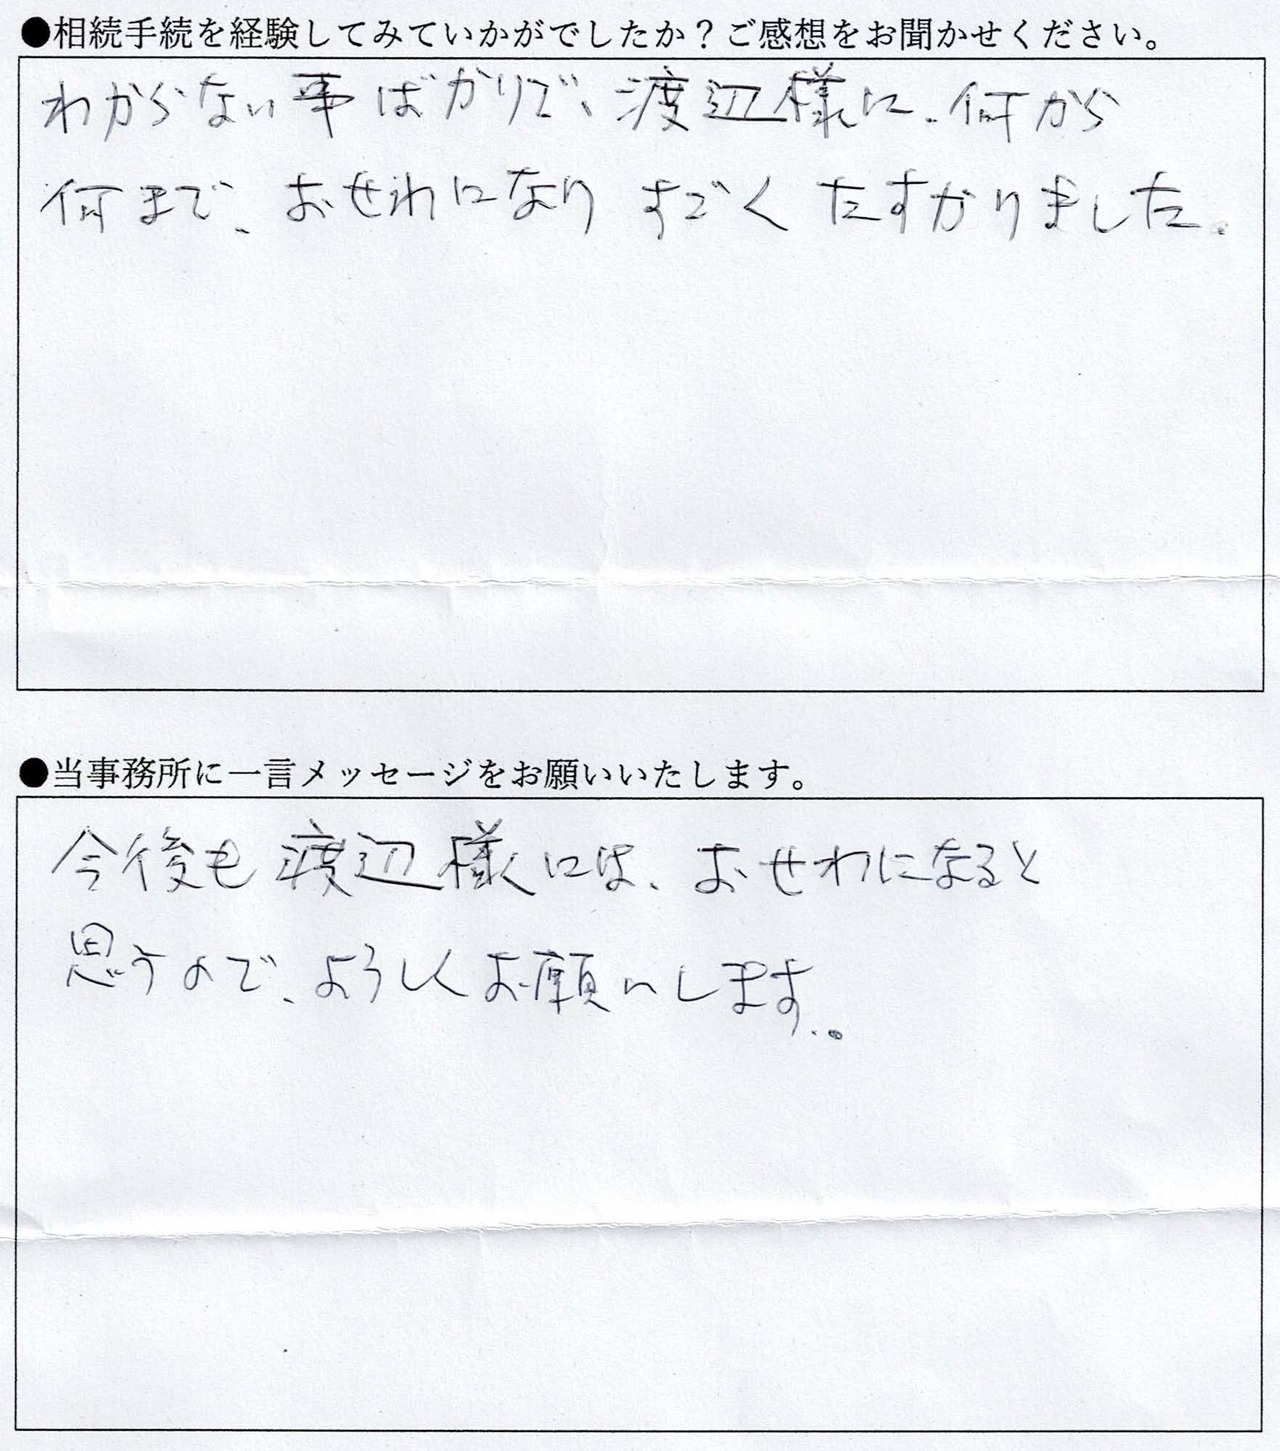 ●相続手続を経験してみていかがでしたか？ご感想をお聞かせください。
わからない事ばかりで、渡辺様に、何から
何まで、おせわになり すごく たすかりました。
●当事務所に一言メッセージをお願いいたします。
今後も渡辺様には、おせわになると
思うので、よろしくお願いします。